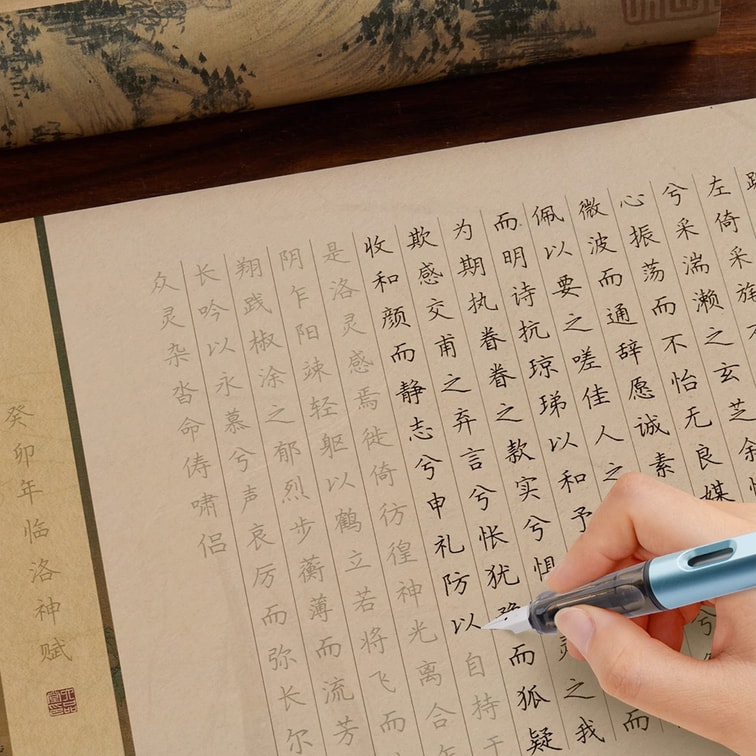 左倚采旄
兮采湍濑之玄芝余
心振荡而不怡无良媒
微波而通辞愿诚素
佩以要之嗟佳人之
而明诗抗琼珶以和予
为期执眷眷之款实兮惧灵之我
欺感交甫之弃言兮怅犹豫而狐疑
收和颜而静志兮申礼防以自持于
是洛灵感焉徙倚彷徨神光离合
阴乍阳竦轻躯以鹤立若将飞而
翔践椒涂之郁烈步蘅薄而流芳
长吟以永慕兮声哀厉而弥长尔
众灵杂沓命俦啸侣
癸卯年临洛神赋